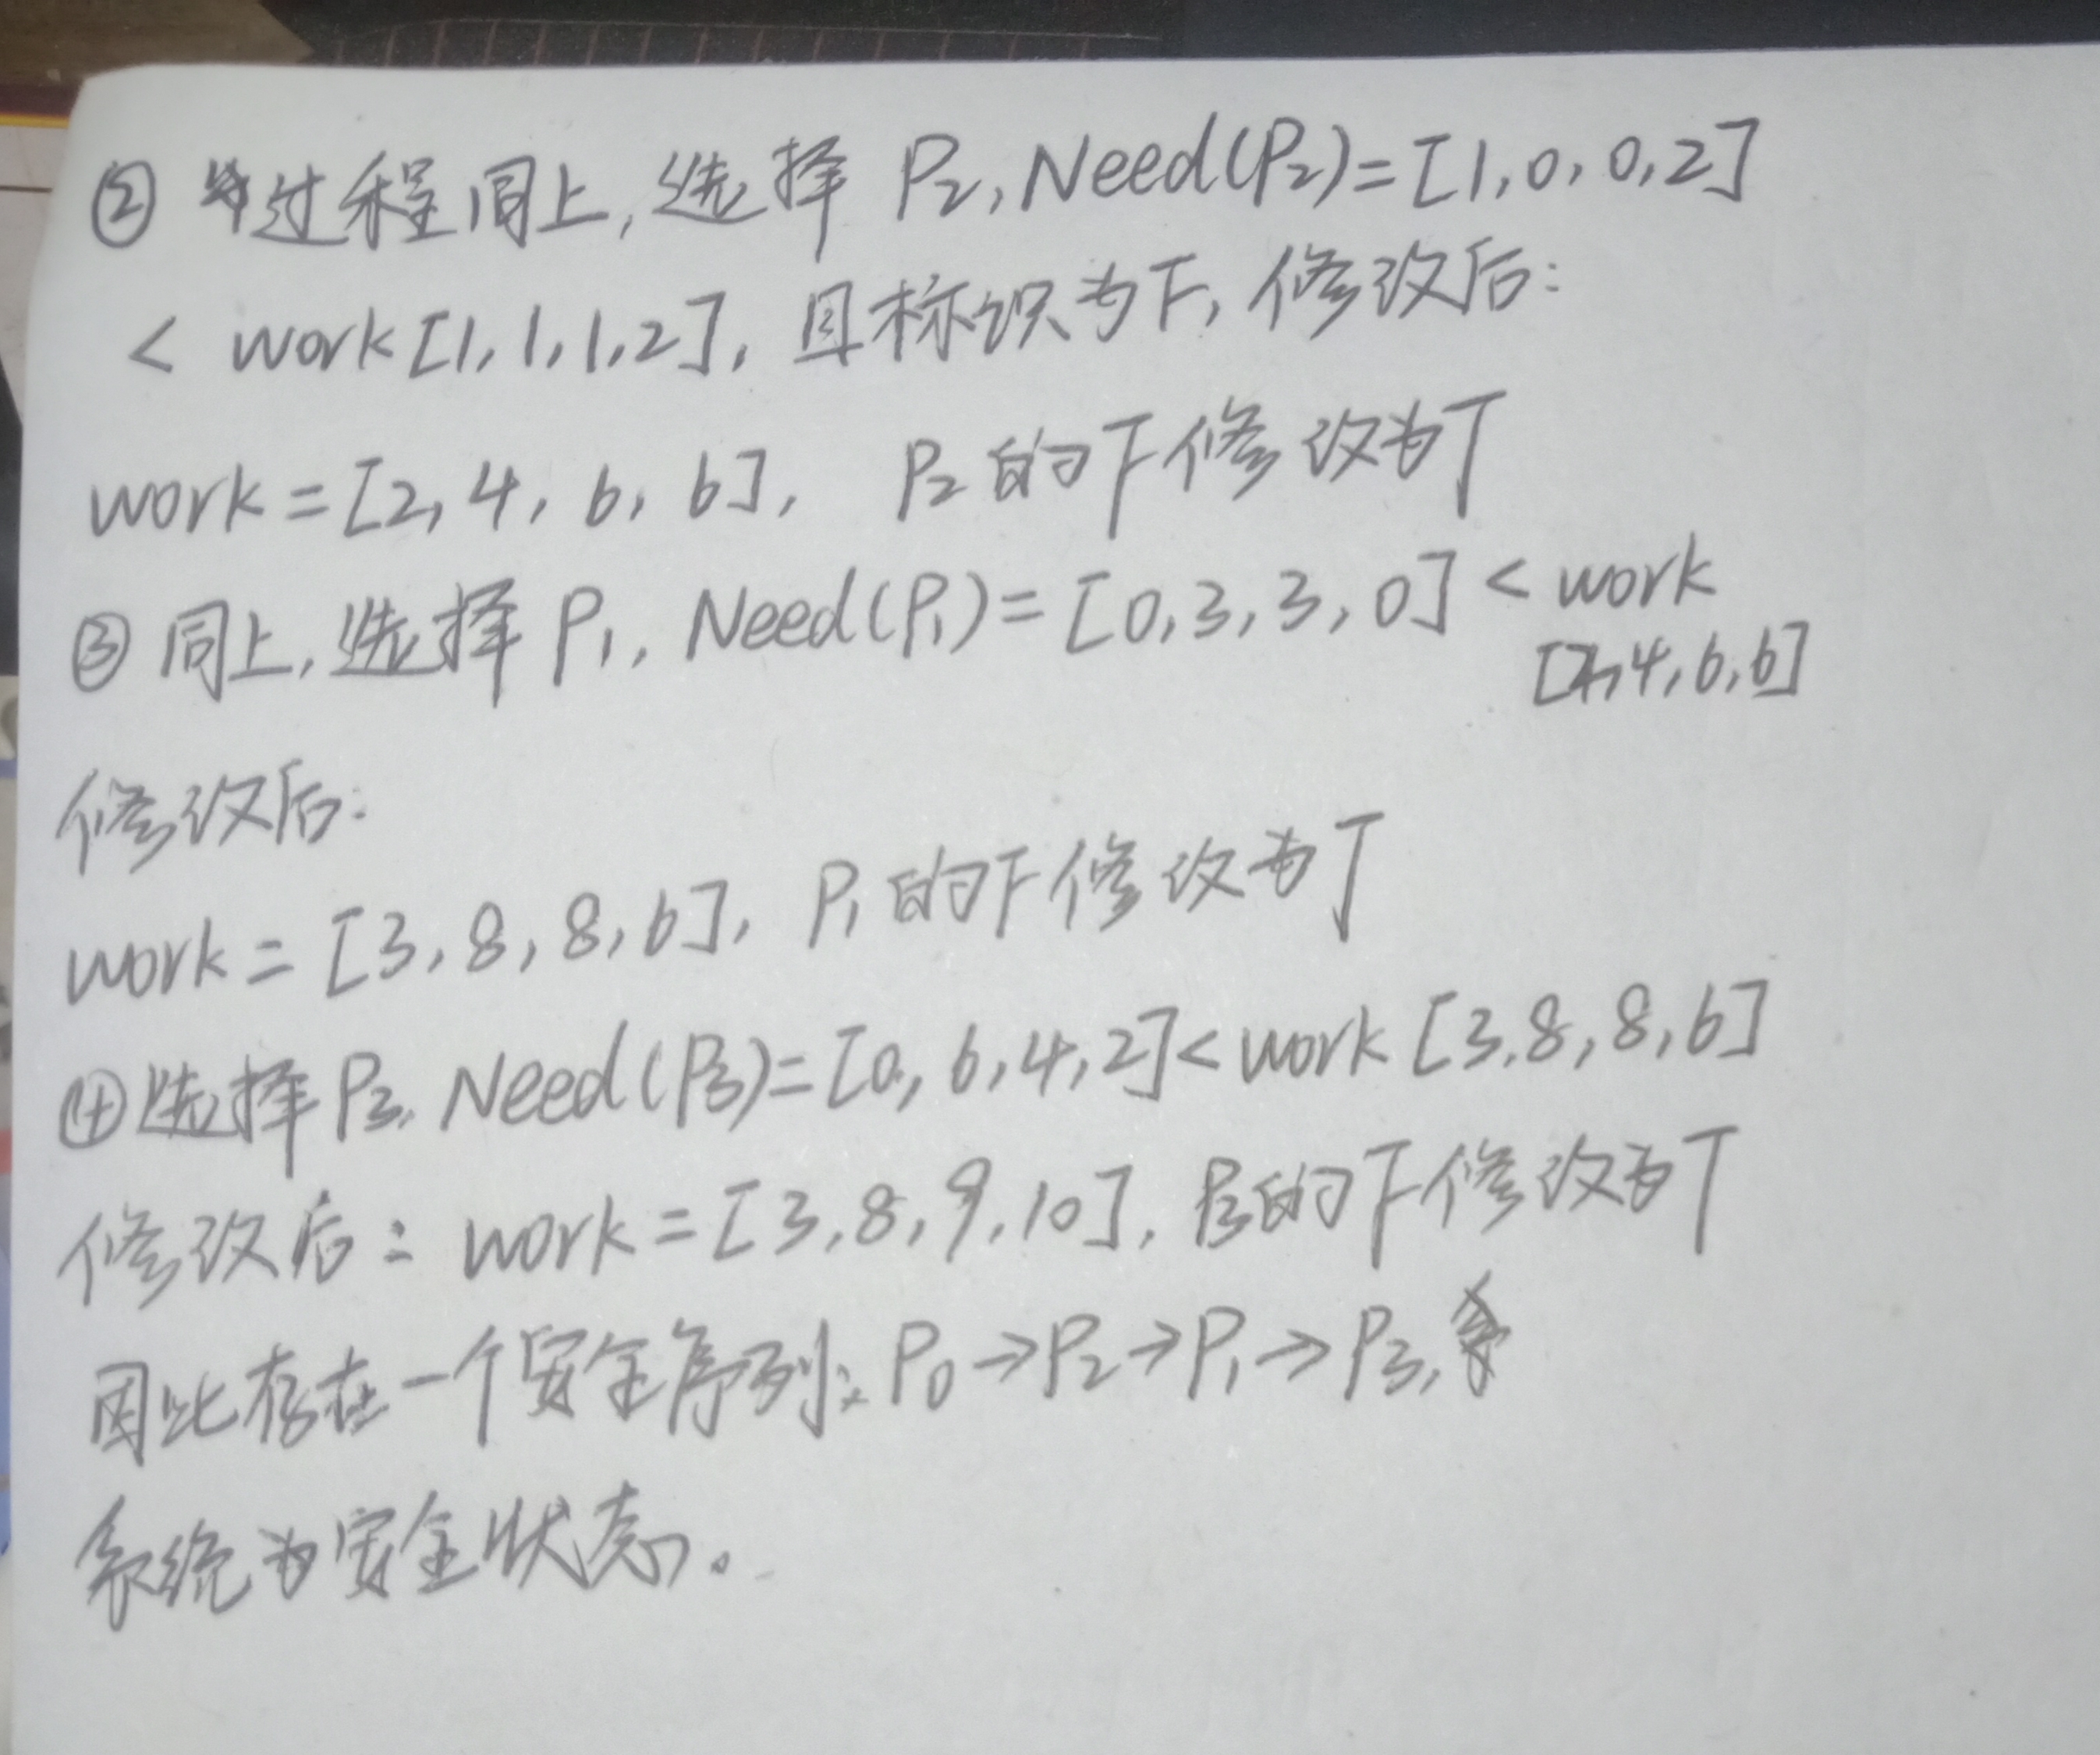 ② 过程同上,选择 P₂,Need(P₂)=[1,0,0,2]
< work[1,1,1,2],且标识为F,修改后:
work=[2,4,6,6], P₂的F修改为T
③ 同上,选择P₁,Need(P₁)=[0,3,3,0]<work
[2,4,6,6]
修改后:
work=[3,8,8,6],P₁的F修改为T
④选择P₃.Need(P₃)=[0,6,4,2]<work[3,8,8,6]
修改后:work=[3,8,9,10],P₃的F修改为T
因此存在一个安全序列:P₀→P₂→P₁→P₃,
系统为安全状态。